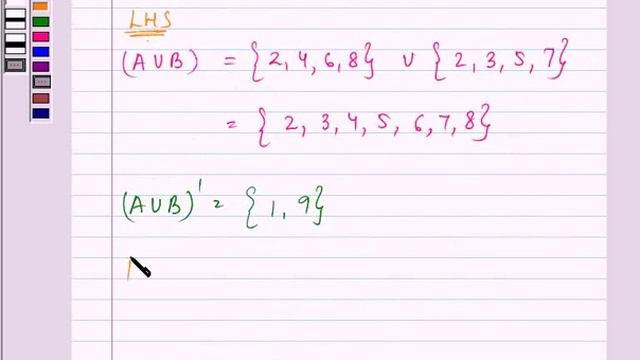 LHS
(A∪B) = {2, 4, 6, 8} ∪ {2, 3, 5, 7}
= {2, 3, 4, 5, 6, 7, 8}
(A∪B)' = {1, 9}